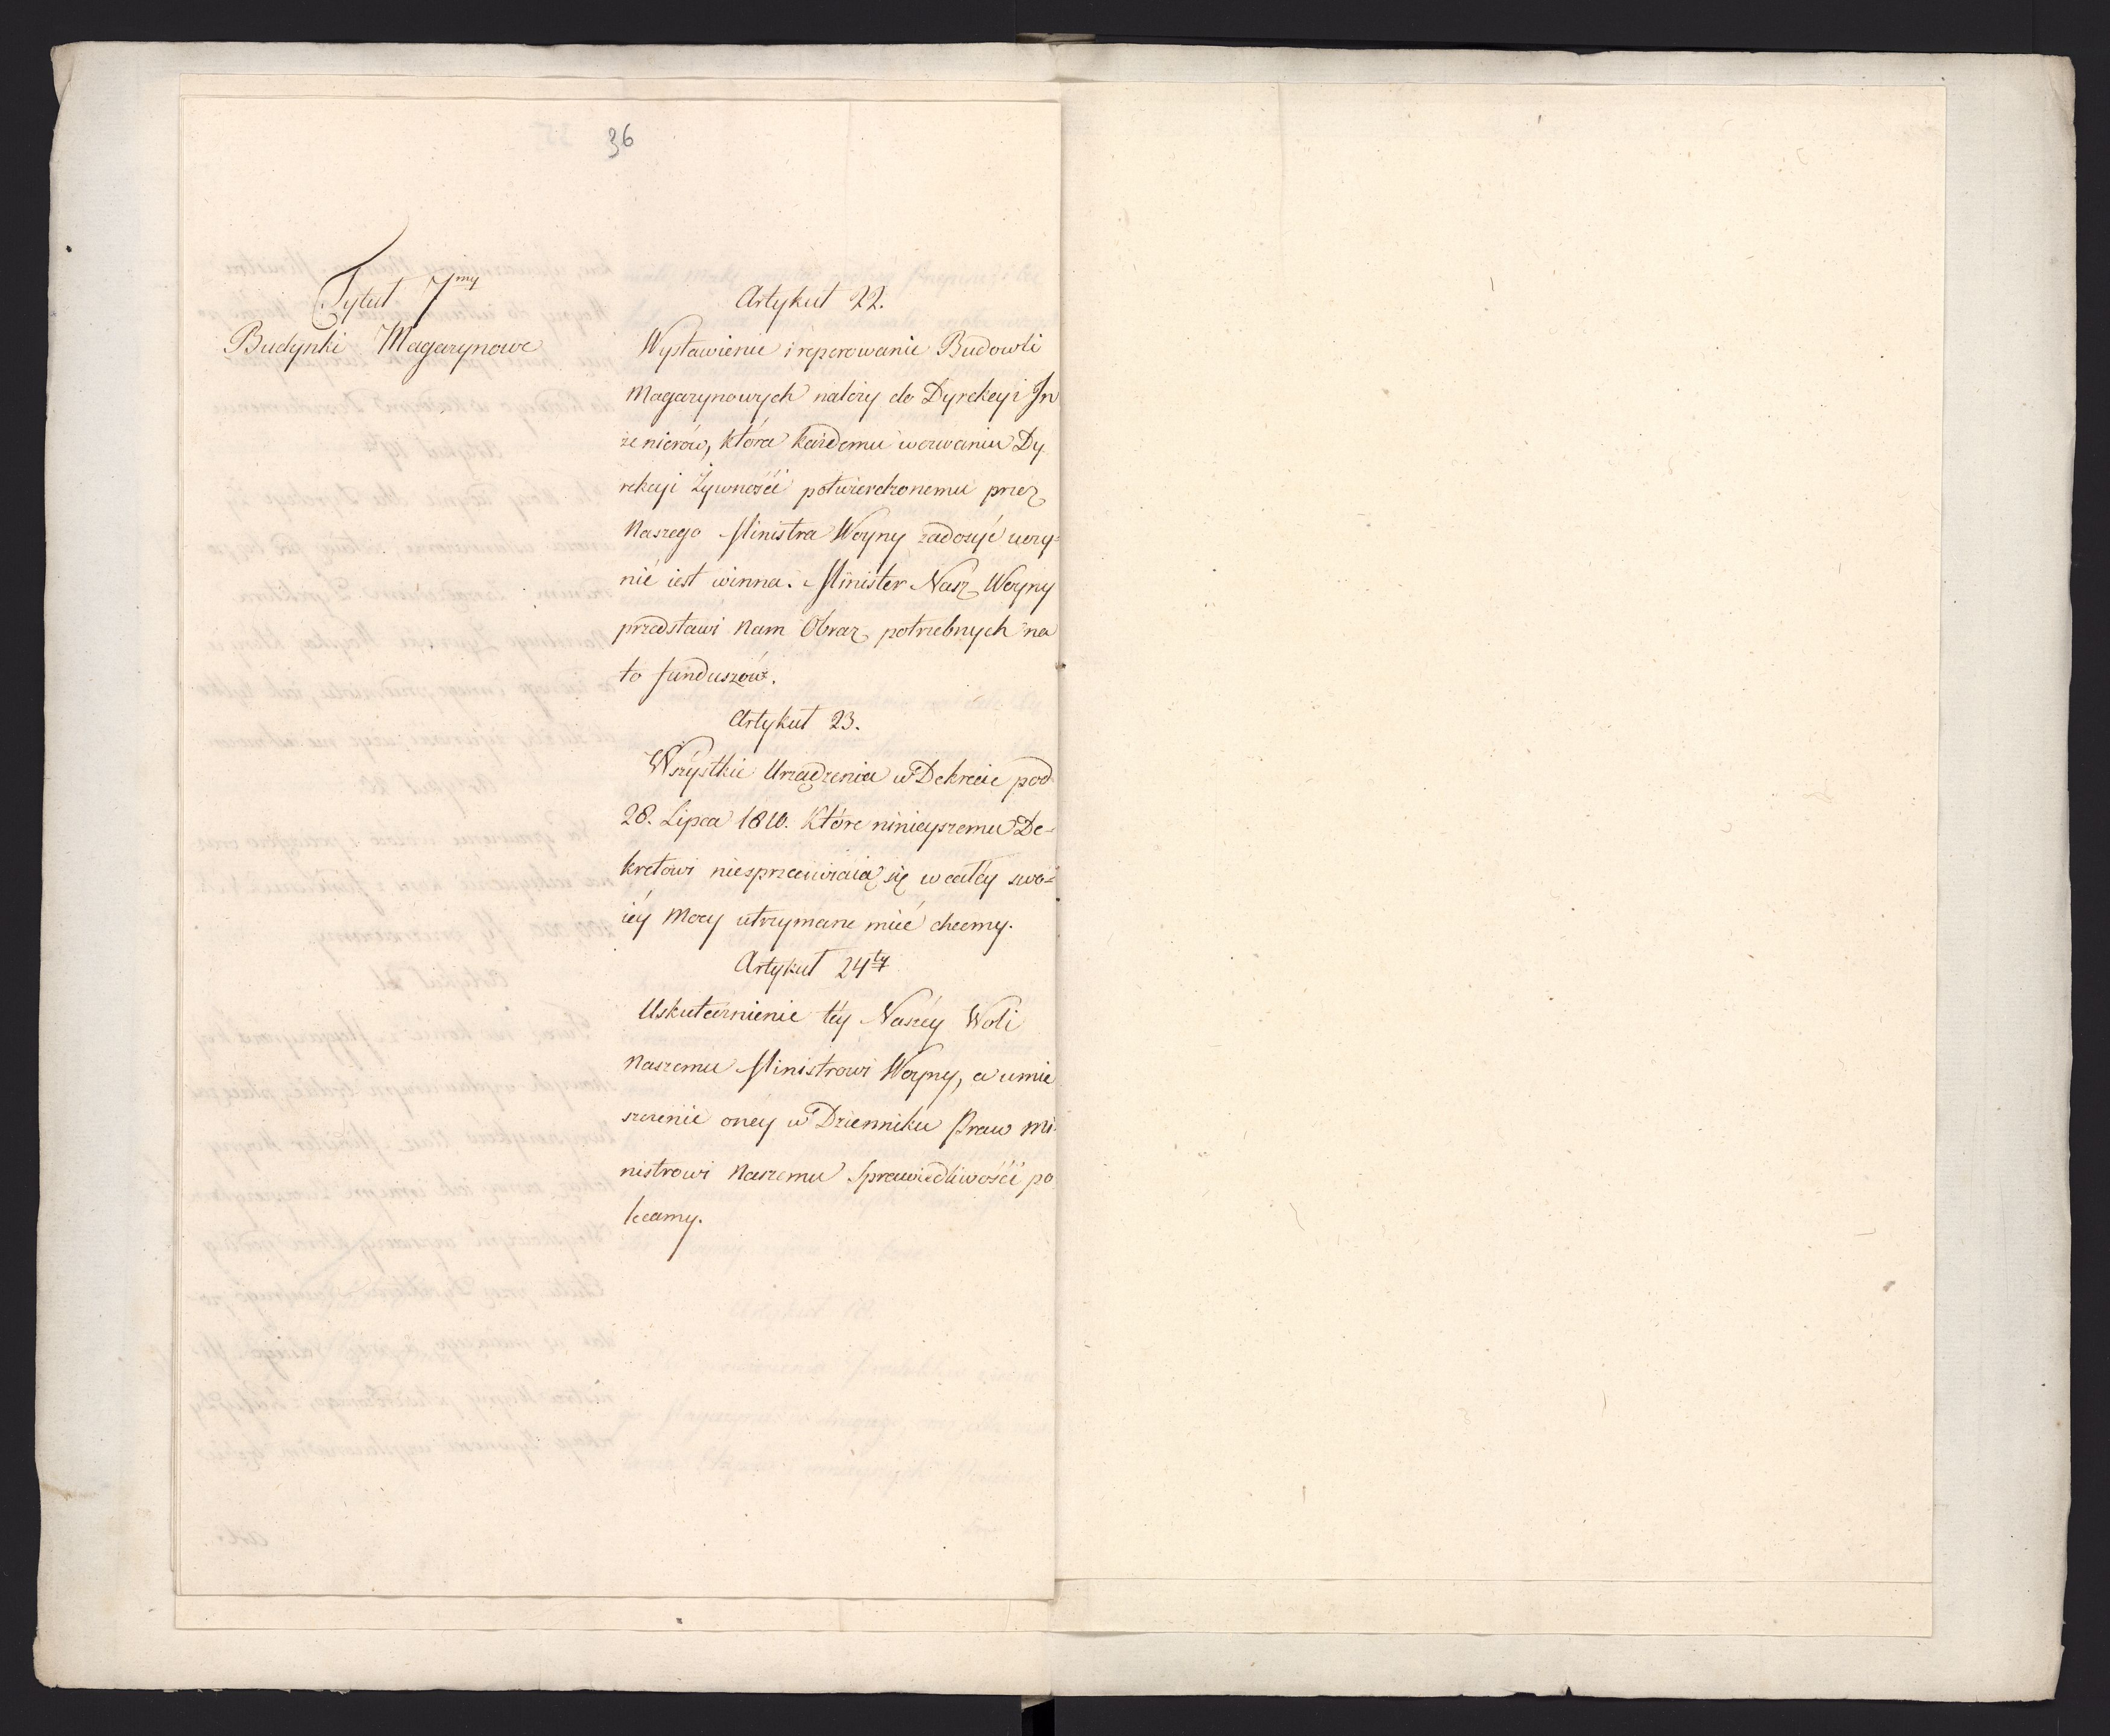 36
Tytuł 7my
Budynki Magazynowe
Artykuł 22.
Wystawienie i reperowanie Budowli
Magazynowych należy do Dyrekcyi In
żenierów, która każdemu wezwaniu Dy
rekcyi Żywności potwierdzonemu przez
Naszego Ministra Woyny zadosyć uczy=
nić iest winna. Minister Nasz Woyny
przedstawi Nam Obraz potrzebnych na
to funduszów.
Artykuł 23.
Wszystkie Urządzenia w Dekrecie pod
28. Lipca 1810. które ninieyszemu De=
kretowi niesprzeciwiaią się w całéy swo=
iéy Mocy utrzymane mieć chcemy.
Artykuł 24ty
Uskutecznienie téy Naszéy Woli
Naszemu Ministrowi Woyny, a umie
szczenie onéy w Dzienniku Praw Mi=
nistrowi Naszemu Sprawiedliwości po
lecamy.